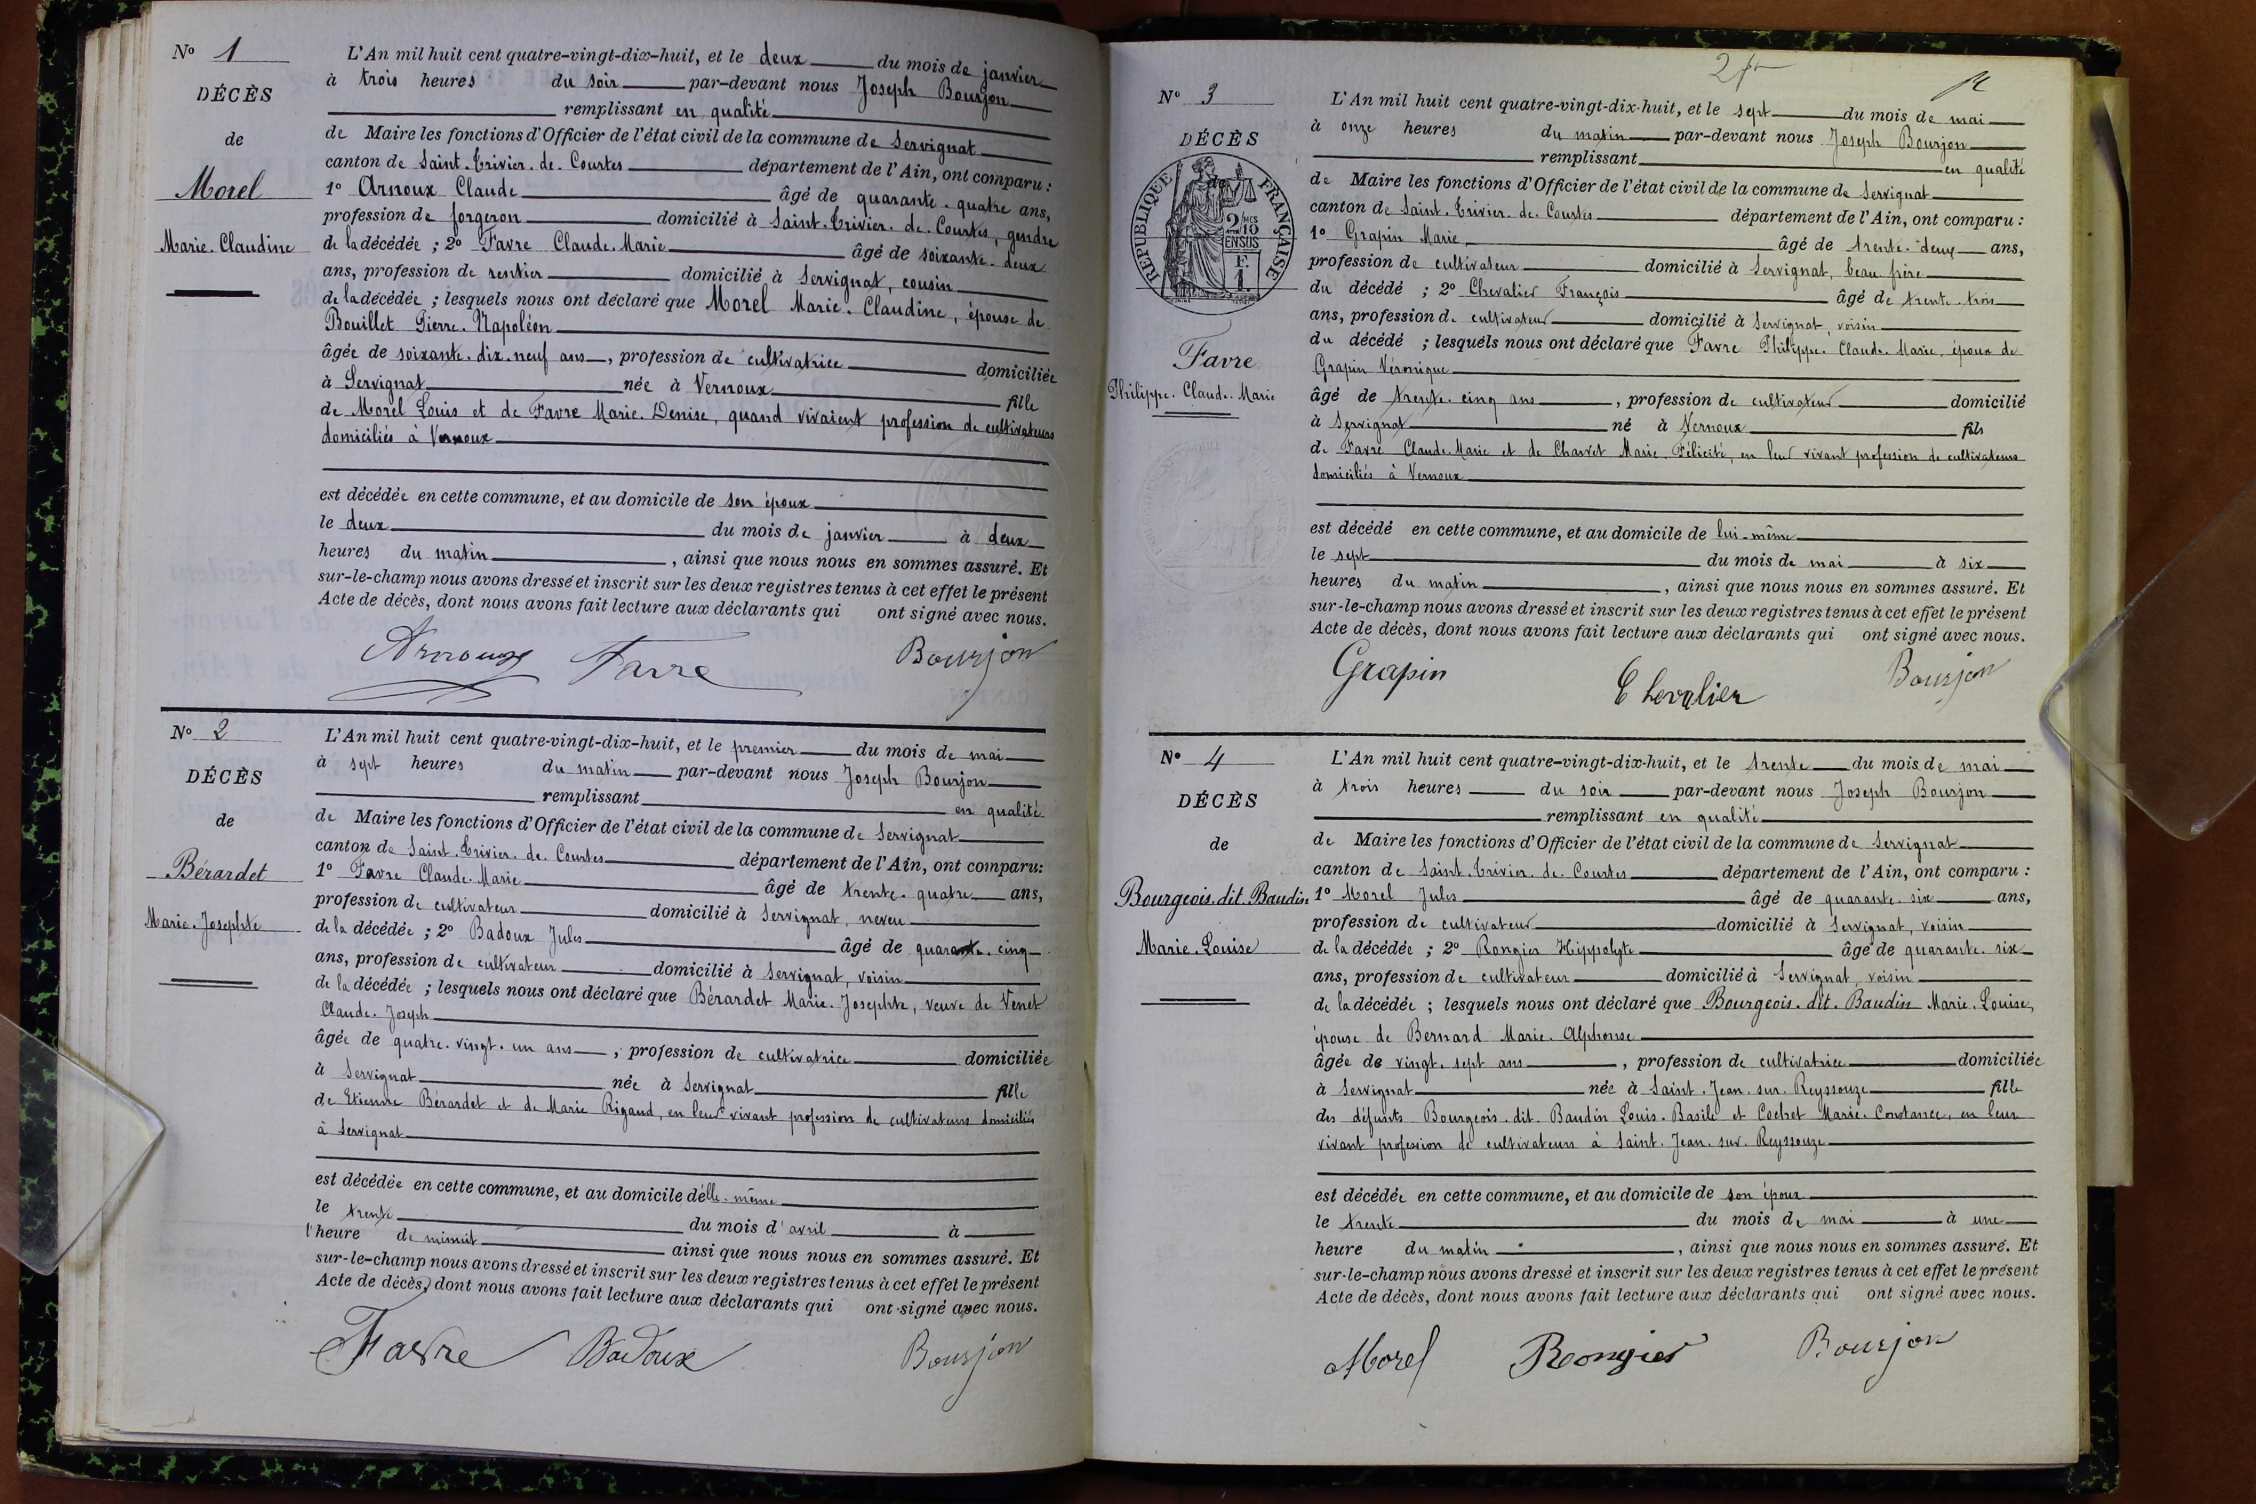 N° 1
DÉCÈS
de
Morel
Marie-Claudine
L'An mil huit cent quatre-vingt-dix-huit, et le deux du mois de janvier
à trois heures du soir par-devant nous Joseph Bourjon
remplissant en qualité
de Maire les fonctions d'Officier de l'état civil de la commune de Servignat
canton de Saint-Trivier-de-Courtes département de l'Ain, ont comparu :
1° Arnoux Claude âgé de quarante-quatre ans,
profession de forgeron domicilié à Saint-Trivier-de-Courtes, gendre
de la décédée ; 2° Favre Claude-Marie âgé de soixante-deux
ans, profession de rentier domicilié à Servignat, cousin
de la décédée ; lesquels nous ont déclaré que Morel Marie-Claudine, épouse de
Bouillet Pierre-Napoléon
âgée de soixante-dix-neuf ans, profession de cultivatrice domiciliée
à Servignat née à Vernoux fille
de Morel Louis et de Favre Marie-Denise, quand vivaient profession de cultivateurs
domiciliés à Vernoux
est décédée en cette commune, et au domicile de son époux
le deux du mois de janvier à deux
heures du matin, ainsi que nous nous en sommes assuré. Et
sur-le-champ nous avons dressé et inscrit sur les deux registres tenus à cet effet le présent
Acte de décès, dont nous avons fait lecture aux déclarants qui ont signé avec nous.
Arnoux Favre Bourjon
N° 2
DÉCÈS
de
Bérardet
Marie-Josephte
L'An mil huit cent quatre-vingt-dix-huit, et le premier du mois de mai
à sept heures du matin par-devant nous Joseph Bourjon
remplissant en qualité
de Maire les fonctions d'Officier de l'état civil de la commune de Servignat
canton de Saint-Trivier-de-Courtes département de l'Ain, ont comparu :
1° Favre Claude-Marie âgé de trente-quatre ans,
profession de cultivateur domicilié à Servignat, neveu
de la décédée ; 2° Badoux Jules âgé de quarante-cinq
ans, profession de cultivateur domicilié à Servignat, voisin
de la décédée ; lesquels nous ont déclaré que Bérardet Marie-Josephte, veuve de Venet
Claude-Joseph
âgée de quatre-vingt-un ans, profession de cultivatrice domiciliée
à Servignat née à Servignat fille
de Etienne Bérardet et de Marie Rigaud, en leur vivant profession de cultivateurs domiciliés
à Servignat
est décédée en cette commune, et au domicile d'elle-même
le trente du mois d'avril à
l'heure de minuit ainsi que nous nous en sommes assuré. Et
sur-le-champ nous avons dressé et inscrit sur les deux registres tenus à cet effet le présent
Acte de décès, dont nous avons fait lecture aux déclarants qui ont signé avec nous.
Favre Badoux Bourjon
N° 3
DÉCÈS
de
RÉPUBLIQUE FRANÇAISE
2/10 MES
EN SUS
F.
1.
Favre
Philippe-Claude-Marie
L'An mil huit cent quatre-vingt-dix-huit, et le sept du mois de mai
à onze heures du matin par-devant nous Joseph Bourjon
remplissant en qualité
de Maire les fonctions d'Officier de l'état civil de la commune de Servignat
canton de Saint-Trivier-de-Courtes département de l'Ain, ont comparu :
1° Grapin Marie âgé de trente-deux ans,
profession de cultivateur domicilié à Servignat, beau-frère
du décédé ; 2° Chevalier François âgé de trente-trois
ans, profession de cultivateur domicilié à Servignat, voisin
du décédé ; lesquels nous ont déclaré que Favre Philippe-Claude-Marie, époux de
Grapin Véronique
âgé de trente-cinq ans, profession de cultivateur domicilié
à Servignat né à Vernoux fils
de Favre Claude-Marie et de Charvet Marie-Félicité, en leur vivant profession de cultivateurs
domiciliés à Vernoux
est décédé en cette commune, et au domicile de lui-même
le sept du mois de mai à six
heures du matin, ainsi que nous nous en sommes assuré. Et
sur-le-champ nous avons dressé et inscrit sur les deux registres tenus à cet effet le présent
Acte de décès, dont nous avons fait lecture aux déclarants qui ont signé avec nous.
Grapin Chevalier Bourjon
N° 4
DÉCÈS
de
Bourgeois-dit-Baudin
Marie-Louise
L'An mil huit cent quatre-vingt-dix-huit, et le trente du mois de mai
à trois heures du soir par-devant nous Joseph Bourjon
remplissant en qualité
de Maire les fonctions d'Officier de l'état civil de la commune de Servignat
canton de Saint-Trivier-de-Courtes département de l'Ain, ont comparu :
1° Morel Jules âgé de quarante-six ans,
profession de cultivateur domicilié à Servignat, voisin
de la décédée ; 2° Rongier Hippolyte âgé de quarante-six
ans, profession de cultivateur domicilié à Servignat, voisin
de la décédée ; lesquels nous ont déclaré que Bourgeois-dit-Baudin Marie-Louise,
épouse de Bernard Marie-Alphonse
âgée de vingt-sept ans, profession de cultivatrice domiciliée
à Servignat née à Saint-Jean-sur-Reyssouze fille
des défunts Bourgeois-dit-Baudin Louis-Basile et Cochet Marie-Constance, en leur
vivant profession de cultivateurs à Saint-Jean-sur-Reyssouze
est décédée en cette commune, et au domicile de son époux
le trente du mois de mai à une
heure du matin, ainsi que nous nous en sommes assuré. Et
sur-le-champ nous avons dressé et inscrit sur les deux registres tenus à cet effet le présent
Acte de décès, dont nous avons fait lecture aux déclarants qui ont signé avec nous.
Morel Rongier Bourjon